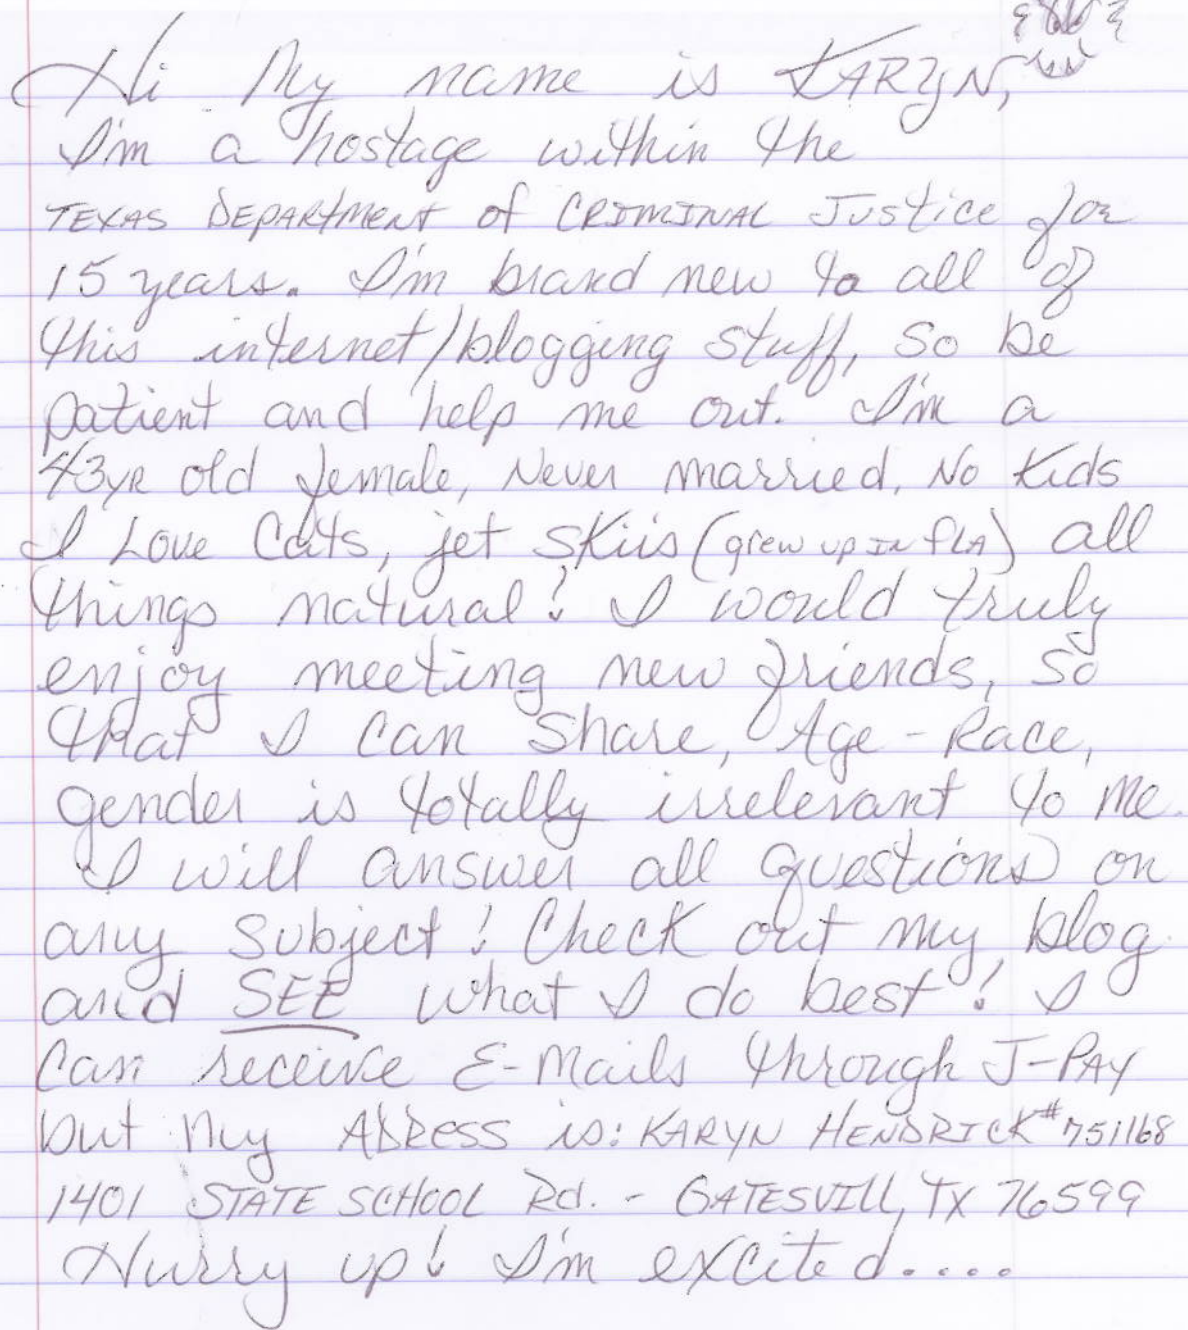 Hi My name is KARYN,
I'm a hostage within the
TEXAS DEPARtMENt of CRIMINAL Justice for
15 years. I'm brand new to all of
this internet/blogging stuff, so be
patient and help me out. I'm a
43yR old female, Never married, No Kids
I Love Cats, jet skiis (grew up IN FLA) all
things natural! I would truly
enjoy meeting new friends, so
that I can share, Age - Race,
gender is totally irrelevant to me.
I will answer all questions on
any subject! Check out my blog
and SEE what I do best! I
Can receive E-Mails through J-PAY
but my ADRESS is: KARYN HENDRICK #751168
1401 STATE SCHOOL Rd. - GATESVILL, TX 76599
Hurry up! I'm excited....